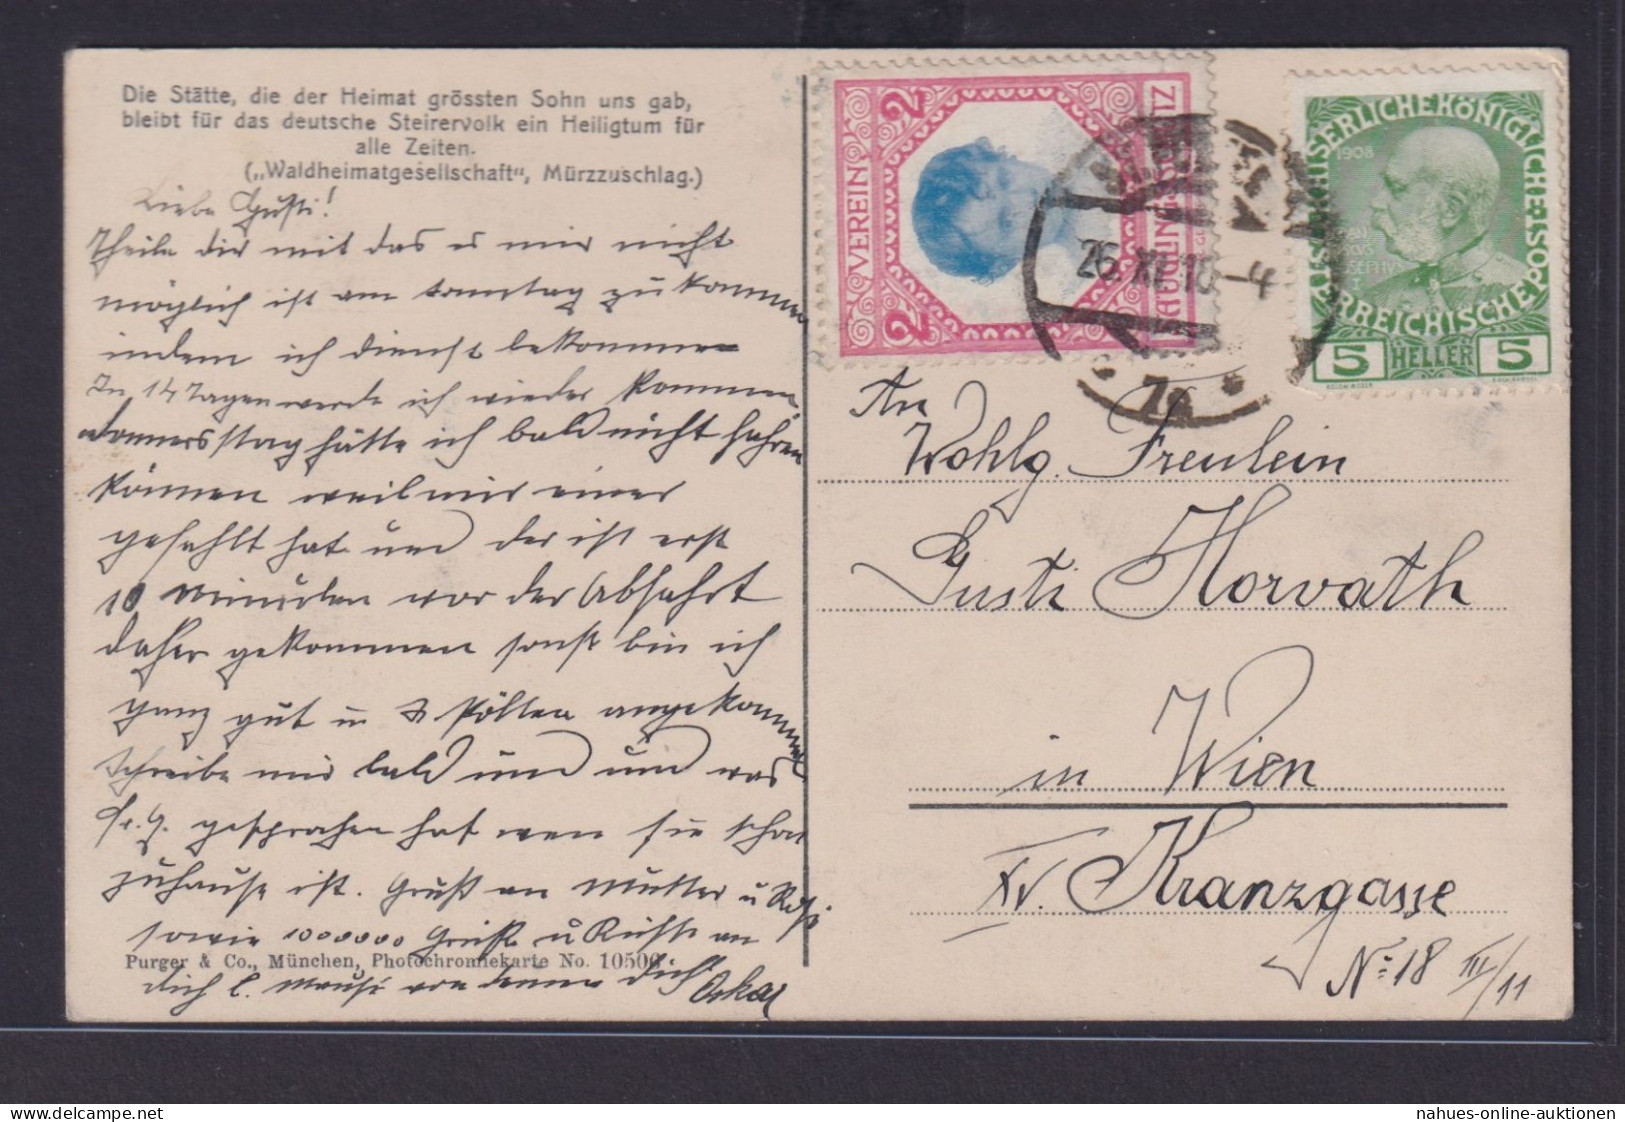 Die Stätte, die der Heimat grössten Sohn uns gab,
bleibt für das deutsche Steirervolk ein Heiligtum für
alle Zeiten.
(„Waldheimatgesellschaft“, Mürzzuschlag.)
Liebe Gusti!
Theile dir mit das es mir nicht
möglich ist am Sonntag zu kommen
indem ich dienst bekommen
In 14 Tagen werde ich wieder kommen
donnersstag hätte ich bald nicht fahren
können weil mir einer
gefehlt hat und der ist erst
10 minuten vor der Abfahrt
daher gekommen sonst bin ich
ganz gut in St Pölten angekommen
schreibe mir bald und und was
Fr. G. gesprochen hat wen sie schon
zuhause ist. Gruß an Mutter u Resi
sowie 1000000 Grüße u Küsse an
Purger & Co., München, Photochromiekarte No. 10506
dich l. Mausi von deinen dich Oskar
VEREIN
2 2
26.XI.10-4
7a
KAISERLICHE KÖNIGLICHE
ÖSTERREICHISCHE POST
1908
5 HELLER 5
An
Wohlg. Freulein
Gusti Horvath
in Wien
XV. Kranzgasse
No 18 III/11
nahues-online-auktionen